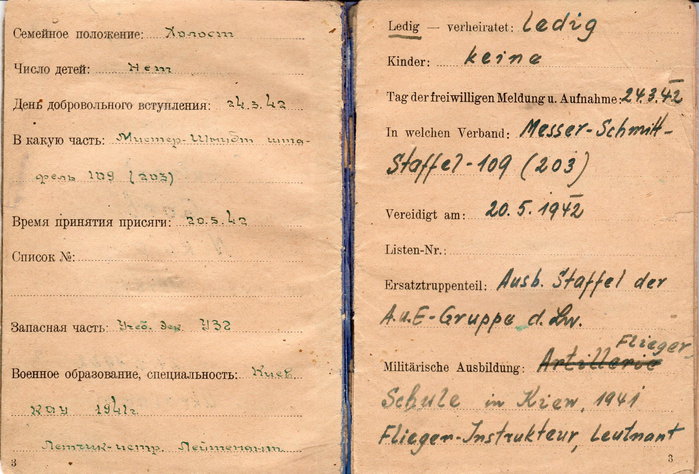 Семейное положение: Холост
Число детей: Нет
День добровольного вступления: 24.3.42
В какую часть: Мистер-Шмидт шта-
фель 109 (203)
Время принятия присяги: 20.5.42
Список №:
Запасная часть: Учеб. УЗ2
Военное образование, специальность: Киев
КАУ 1941г
Летчик-истр. Лейтенант
3
Ledig — verheiratet: ledig
Kinder: keine
Tag der freiwilligen Meldung u. Aufnahme: 24.3.42
In welchen Verband: Messer-Schmitt-
Staffel-109 (203)
Vereidigt am: 20.5.1942
Listen-Nr.:
Ersatztruppenteil: Ausb. Staffel der
A.u.E-Gruppe d. Lw.
Flieger
Militärische Ausbildung: Artillerie
Schule in Kiew, 1941
Flieger-Instrukteur, Leutnant
3